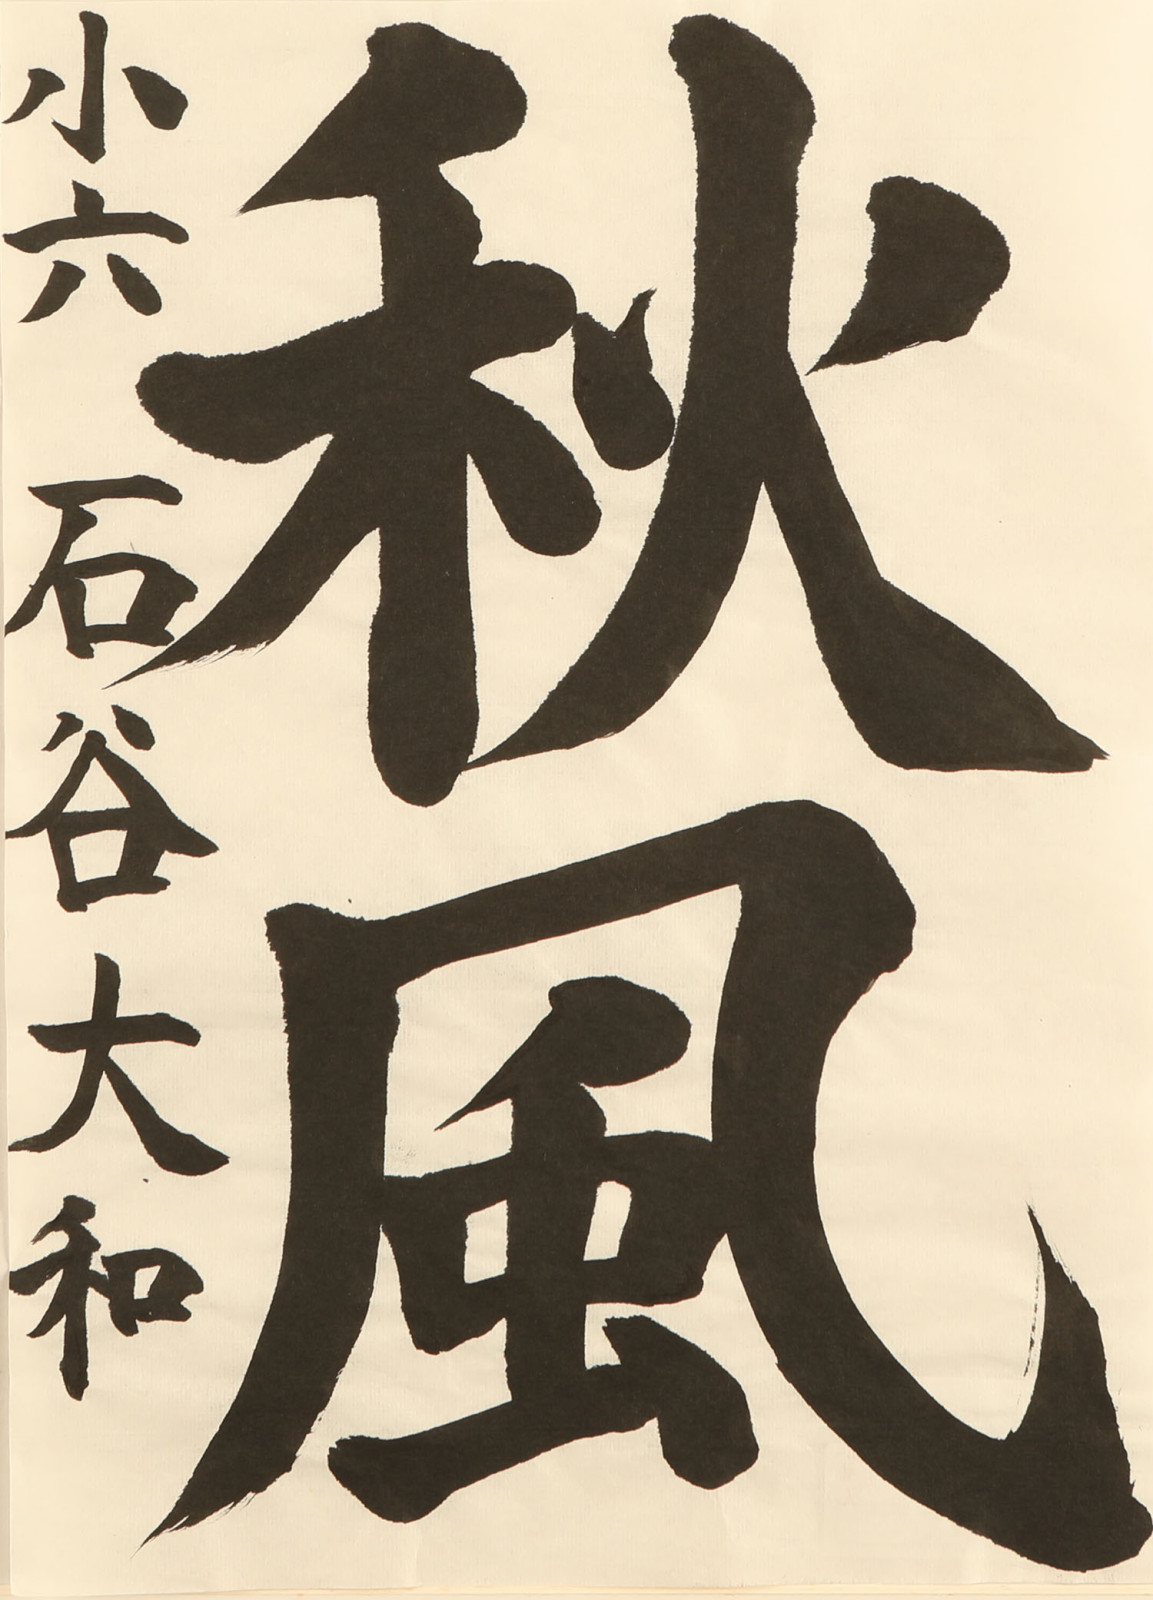 秋風
小六 石谷大和